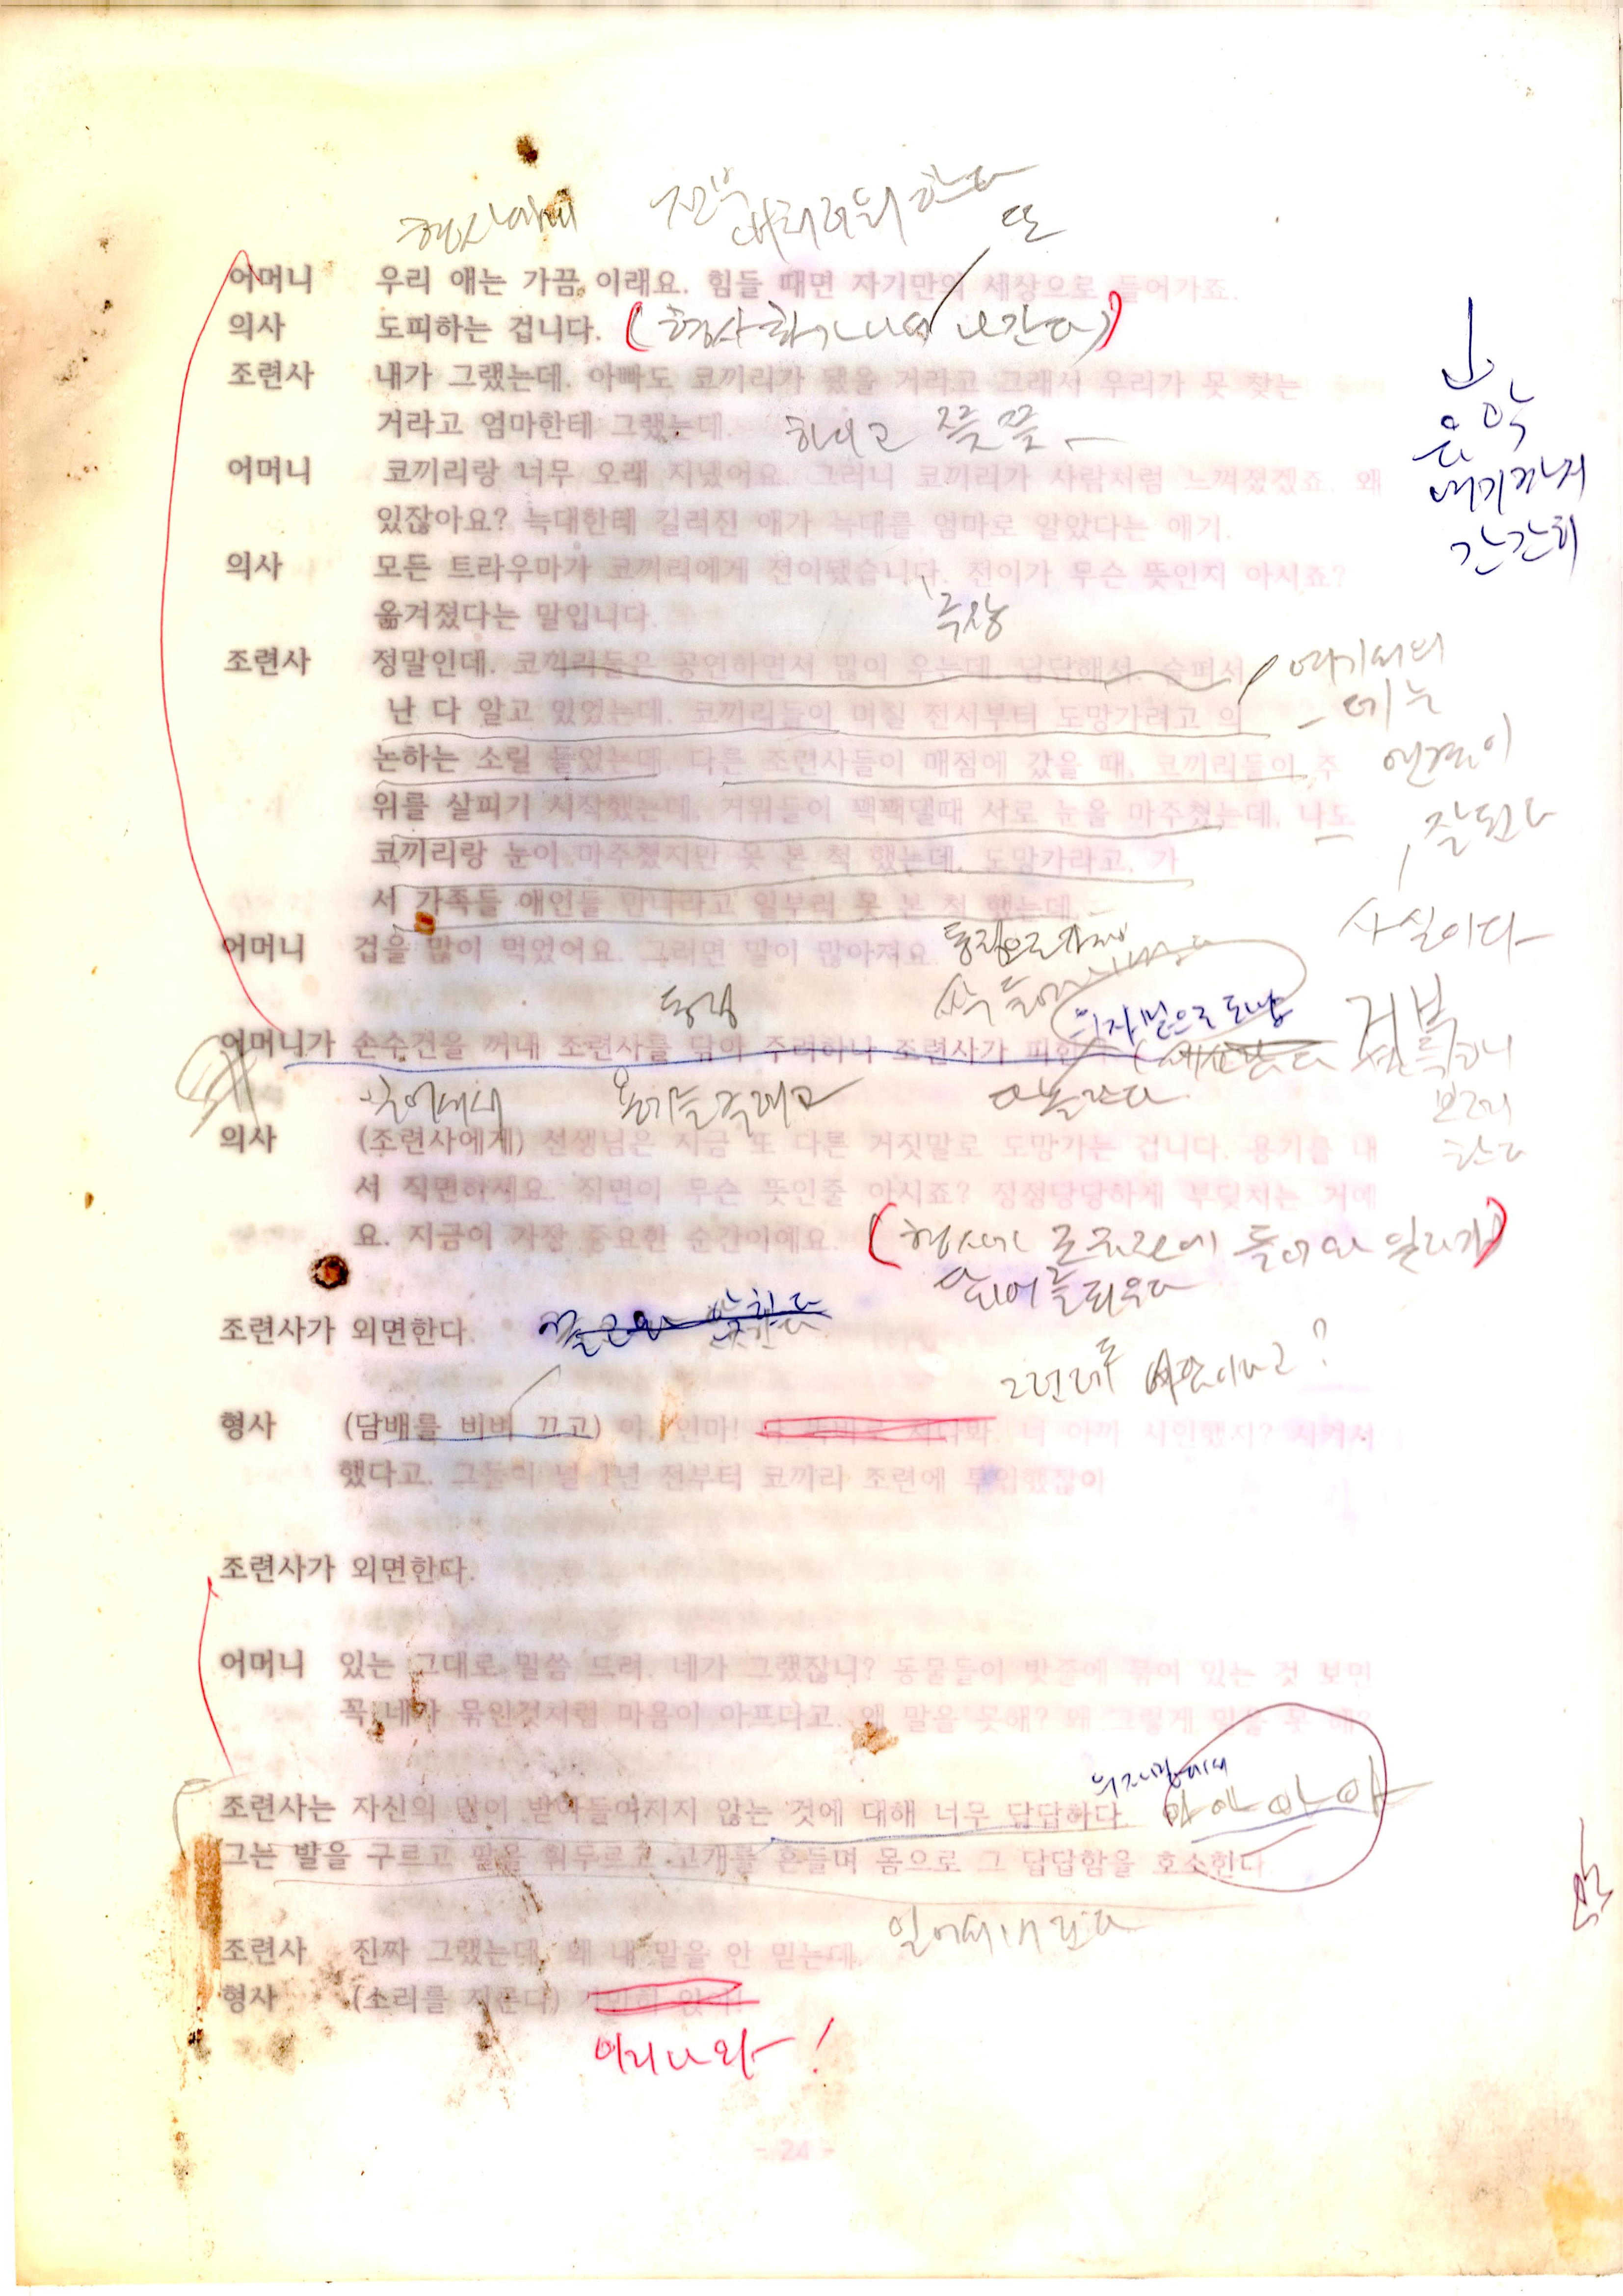 형사에게
또
어머니 우리 애는 가끔 이래요. 힘들 때면 자기만의 세상으로 들어가죠.
의사 도피하는 겁니다. (형사 화가 나서 나간다)
조련사 내가 그랬는데. 아빠도 코끼리가 됐을 거라고 그래서 우리가 못 찾는
거라고 엄마한테 그랬는데.
음악
여기까지
간간히
어머니 코끼리랑 너무 오래 지냈어요. 그러니 코끼리가 사람처럼 느껴졌겠죠. 왜
있잖아요? 늑대한테 길러진 애가 늑대를 엄마로 알았다는 얘기.
의사 모든 트라우마가 코끼리에게 전이됐습니다. 전이가 무슨 뜻인지 아시죠?
옮겨졌다는 말입니다.
조련사 정말인데. 코끼리들은 공연하면서 많이 우는데. 답답해서. 슬퍼서
난 다 알고 있었는데. 코끼리들이 며칠 전서부터 도망가려고 의
논하는 소릴 들었는데. 다른 조련사들이 매점에 갔을 때, 코끼리들이 주
위를 살피기 시작했는데. 거위들이 꽥꽥댈때 서로 눈을 마주쳤는데, 나도
코끼리랑 눈이 마주쳤지만 못 본 척 했는데. 도망가라고, 가
서 가족들 애인들 만나라고 일부러 못 본 척 했는데.
잘된다
사실이다
어머니 겁을 많이 먹었어요. 그러면 말이 많아져요.
의자 밑으로 도망
어머니가 손수건을 꺼내 조련사를 닦아 주려하나 조련사가 피한
의사 (조련사에게) 선생님은 지금 또 다른 거짓말로 도망가는 겁니다. 용기를 내
서 직면하세요. 직면이 무슨 뜻인줄 아시죠? 정정당당하게 부딪치는 거예
요. 지금이 가장 중요한 순간이에요.
조련사가 외면한다.
형사 (담배를 비벼 끄고) 야, 인마! 너 아까 시인했지? 시켜서
했다고. 그들이 널 1년 전부터 코끼리 조련에 투입했잖아
조련사가 외면한다.
어머니 있는 그대로 말씀 드려. 네가 그랬잖니? 동물들이 밧줄에 묶여 있는 것 보면
꼭 네가 묶인것처럼 마음이 아프다고. 왜 말을 못해? 왜 그렇게 말을 못 해?
조련사는 자신의 말이 받아들여지지 않는 것에 대해 너무 답답하다. 아 아 아 아
그는 발을 구르고 팔을 휘두르고 고개를 흔들며 몸으로 그 답답함을 호소한다
조련사 진짜 그랬는데. 왜 내 말을 안 믿는데.
형사 (소리를 지른다)
이리 나와!
- 24 -